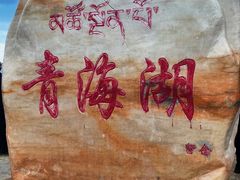 མཚོ་སྔོན་པོ་
青海湖